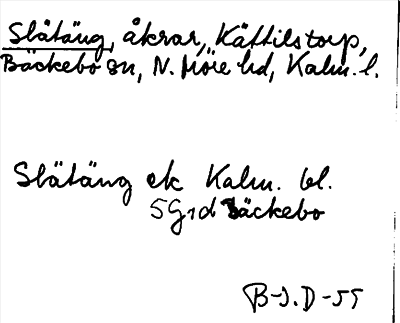 Slätäng, åkrar, Kättilstorp,
Bäckebo sn, N. Möre hd, Kalm. l.
Slätäng ek Kalm. bl.
5G1d Bäckebo
B-J.D-55